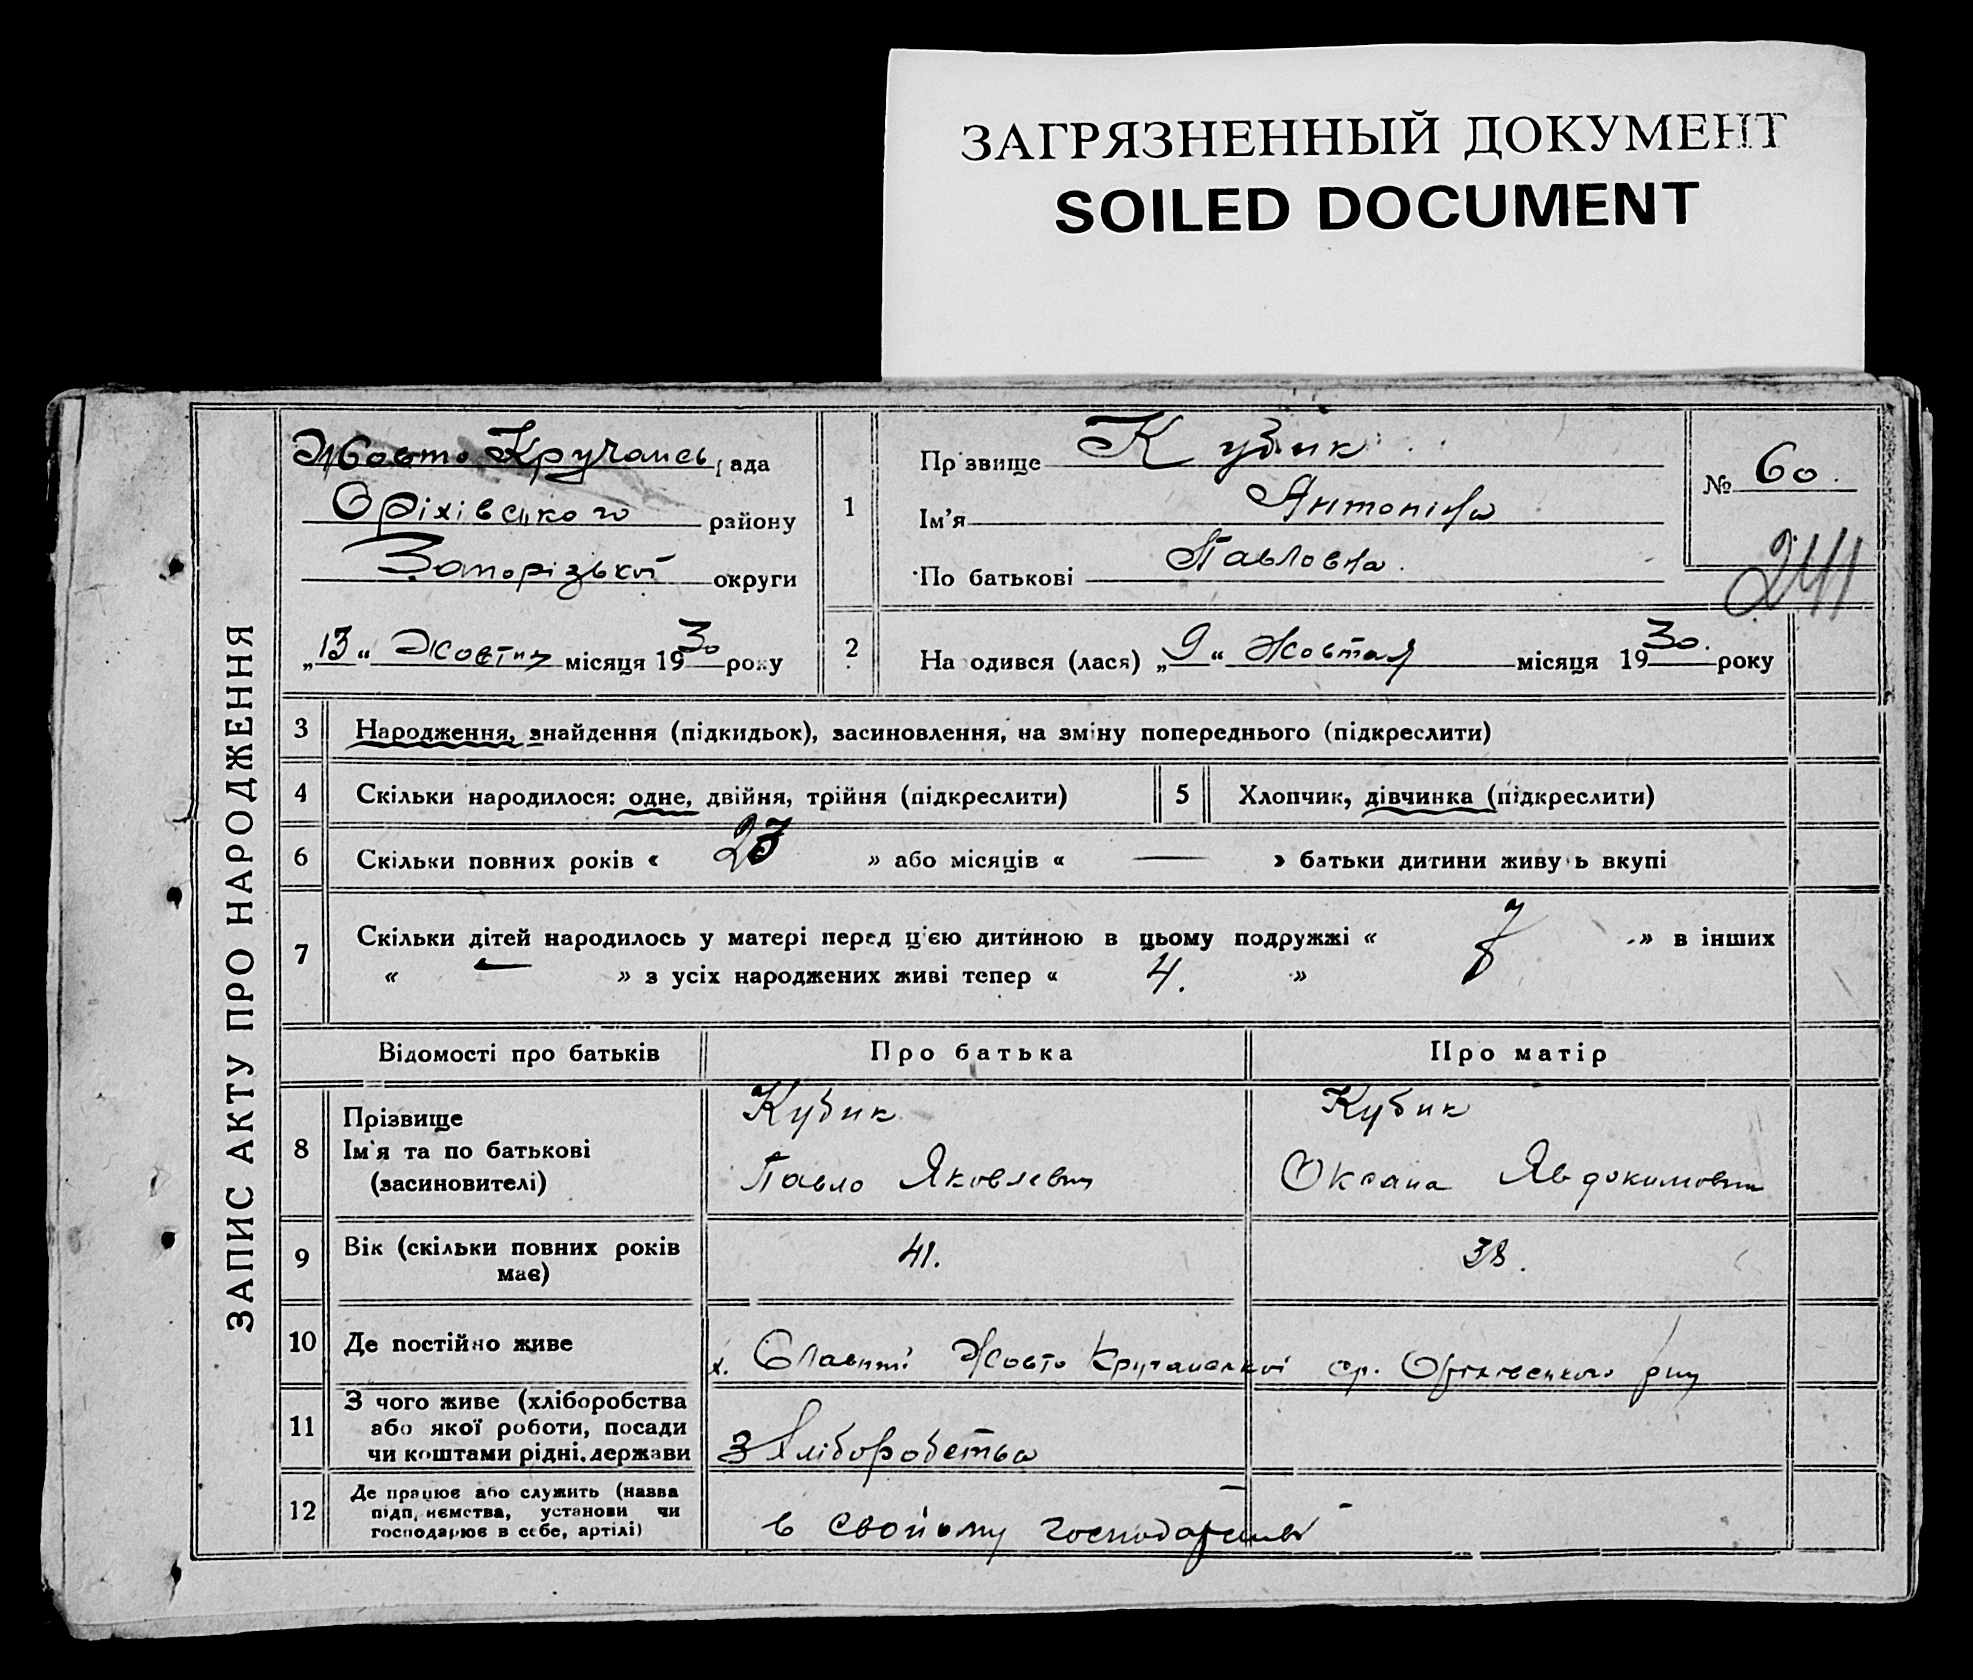 ЗАГРЯЗНЕННЫЙ ДОКУМЕНТ
SOILED DOCUMENT
ЗАПИС АКТУ ПРО НАРОДЖЕННЯ
Жовто Кручансь рада
Оріхівського району
Запорізької округи
„13“ Жовтня місяця 1930 року
1
Прізвище Кубик
Ім'я Антоніна
По батькові Павловна
№ 60.
241
2
Народився (лася) „9“ Жовтня місяця 1930. року
3 Народження, знайдення (підкидьок), засиновлення, на зміну попереднього (підкреслити)
4 Скільки народилося: одне, двійня, трійня (підкреслити)
5 Хлопчик, дівчинка (підкреслити)
6 Скільки повних років « » або місяців « — » батьки дитини живуть вкупі
7 Скільки дітей народилось у матері перед ц'єю дитиною в цьому подружжі « » в інших
« — » з усіх народжених живі тепер « 4. »
Відомості про батьків Про батька Про матір
8 Прізвище
Ім'я та по батькові
(засиновителі)
Кубик
Павло Яковлевич
Кубик
Оксана Явдокимовна
9 Вік (скільки повних років
має)
41.
38.
10 Де постійно живе
х. Жовто Кручанської ср. Оріхівського р-ну
11 З чого живе (хліборобства
або якої роботи, посади
чи коштами рідні, держави
З Хліборобства
12 Де працює або служить (назва
підприємства, установи чи
господарює в себе, артілі)
в свойому господарстві